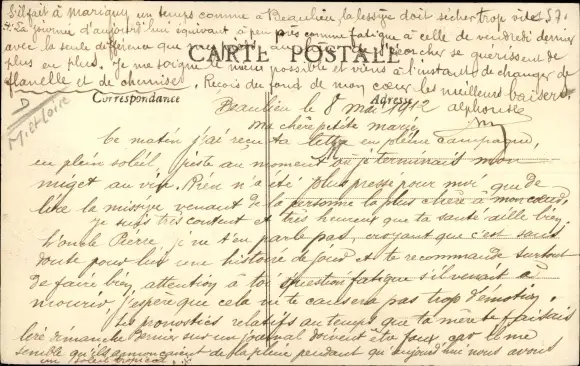 S'il fait à Marigny un temps comme à Beaulieu, la lessive doit sécher trop vite 57.
La journée d'aujourd'hui équivaut à peu près comme fatigue à celle de vendredi dernier
avec la seule différence que mes
écorcher se guérissent de
plus en plus. Je me soigne le mieux possible et viens à l'instant de changer de
flanelle et de chemise. Reçois du fond de mon cœur les meilleurs baisers
CARTE POSTALE
Alphonse
Correspondance
Adresse
D
M. et Loire
Beaulieu le 8 mai 1912
Ma chère petite Marie
Ce matin j'ai reçu ta lettre en pleine campagne,
en plein soleil, juste au moment où je terminais mon
au vin. Rien n'a été plus pressé pour moi que de
lire la missive venant de la personne la plus chère à mon cœur.
Je suis très content et très heureux que ta santé aille bien.
L'oncle Pierre, je ne t'en parle pas, croyant que c'est sans
doute pour lui une histoire de et te recommande surtout
de faire bien attention à toi question fatigue s'il venait à
mourir, j'espère que cela ne te causera pas trop d'émotion.
Les pronostics relatifs au temps que ta mère te faisait
dimanche dernier sur un journal doivent être faux, car il me
semble qu'ils annonçaient de la pluie pendant qu'aujourd'hui nous avons
un soleil tropical.